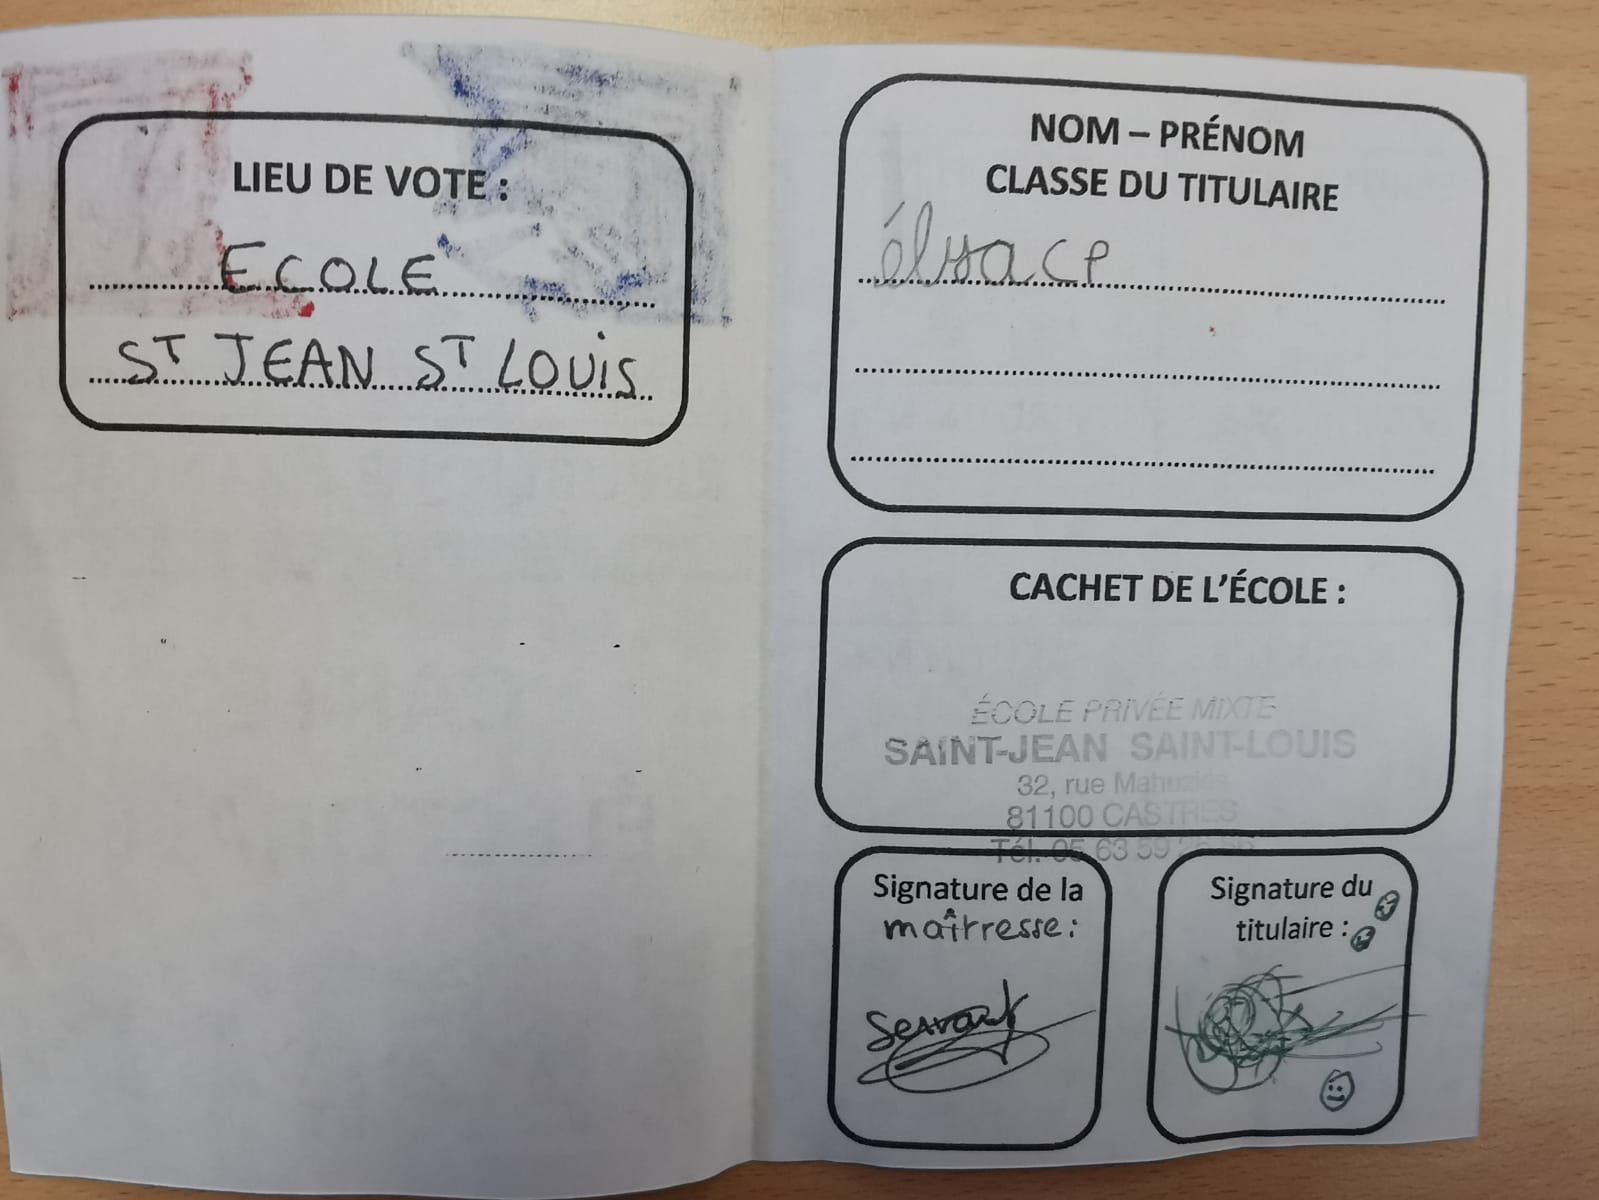 LIEU DE VOTE :
ECOLE
ST JEAN ST LOUIS
NOM – PRÉNOM
CLASSE DU TITULAIRE
élya CP
CACHET DE L'ÉCOLE :
ÉCOLE PRIVÉE MIXTE
SAINT-JEAN SAINT-LOUIS
32, rue Mahuzies
81100 CASTRES
Tél. 05 63 59
Signature de la
maîtresse :
Signature du
titulaire :